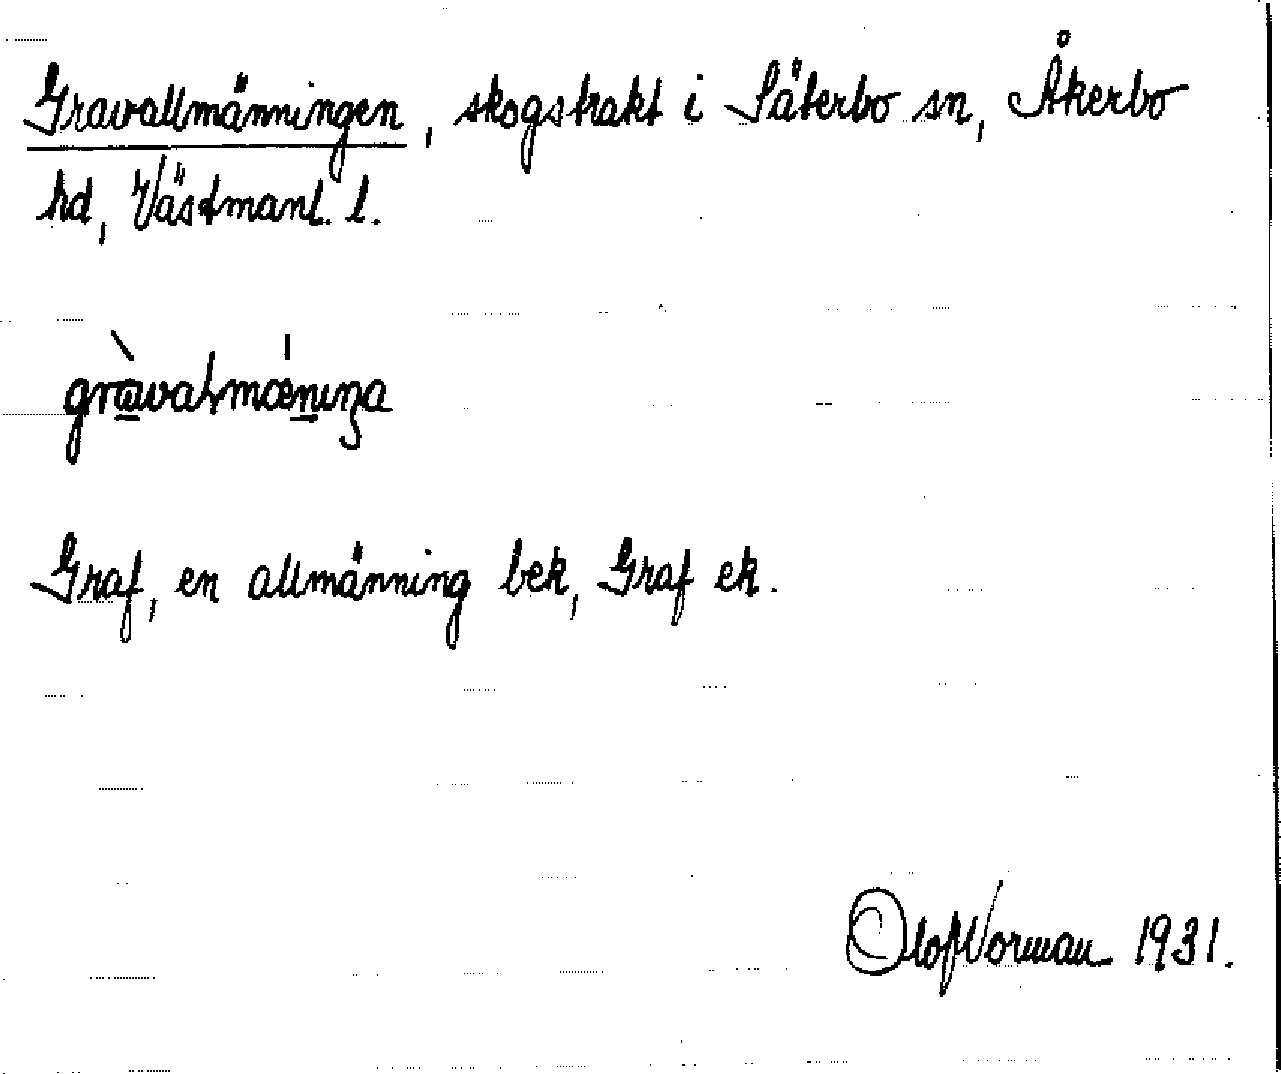 Gravallmänningen, skogstrakt i Säterbo sn, Åkerbo
hd, Västmanl. l.
gràvalmæ̍niŋa
Graf, en allmänning bek, Graf ek.
Olof Norman 1931.